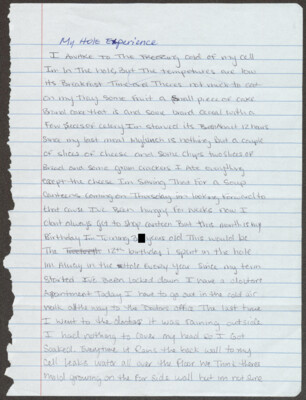 My Hole Experience
I Awoke To The freezing cold of my cell
Im In The hole, But The tempetures are low
Its Breakfast Time now Theres not much to eat
on my Tray Some fruit a small piece of cake
Bread over that & and some bran cereal with a
few Im starved its Been About 12 hours
Since my last meal My lunch is nothing but a couple
of slices of cheese and some chips two slices of
Bread and some gram crackers I Ate everything
except the cheese Im Saving That for a Soup
Canteens coming on Thursday im looking forward to
that cause I've Been hungry for weeks now I
cant always get to shop canteen But this month is my
Birthday Im Turning years old This would be
The 12th birthday I spent in the hole
Im Always in the Hole Every year Since my term
Started Ive Been locked down I have a doctors
Appointment Today I have to go out in the cold air
walk all the way to the Doctors office The last time
I went to the doctors it was raining outside
I had nothing to cover my head so I Got
Soaked. Everytime it rains the back wall to my
Cell leaks water all over the floor We Think theres
Mold growing on the far side wall but im not sure